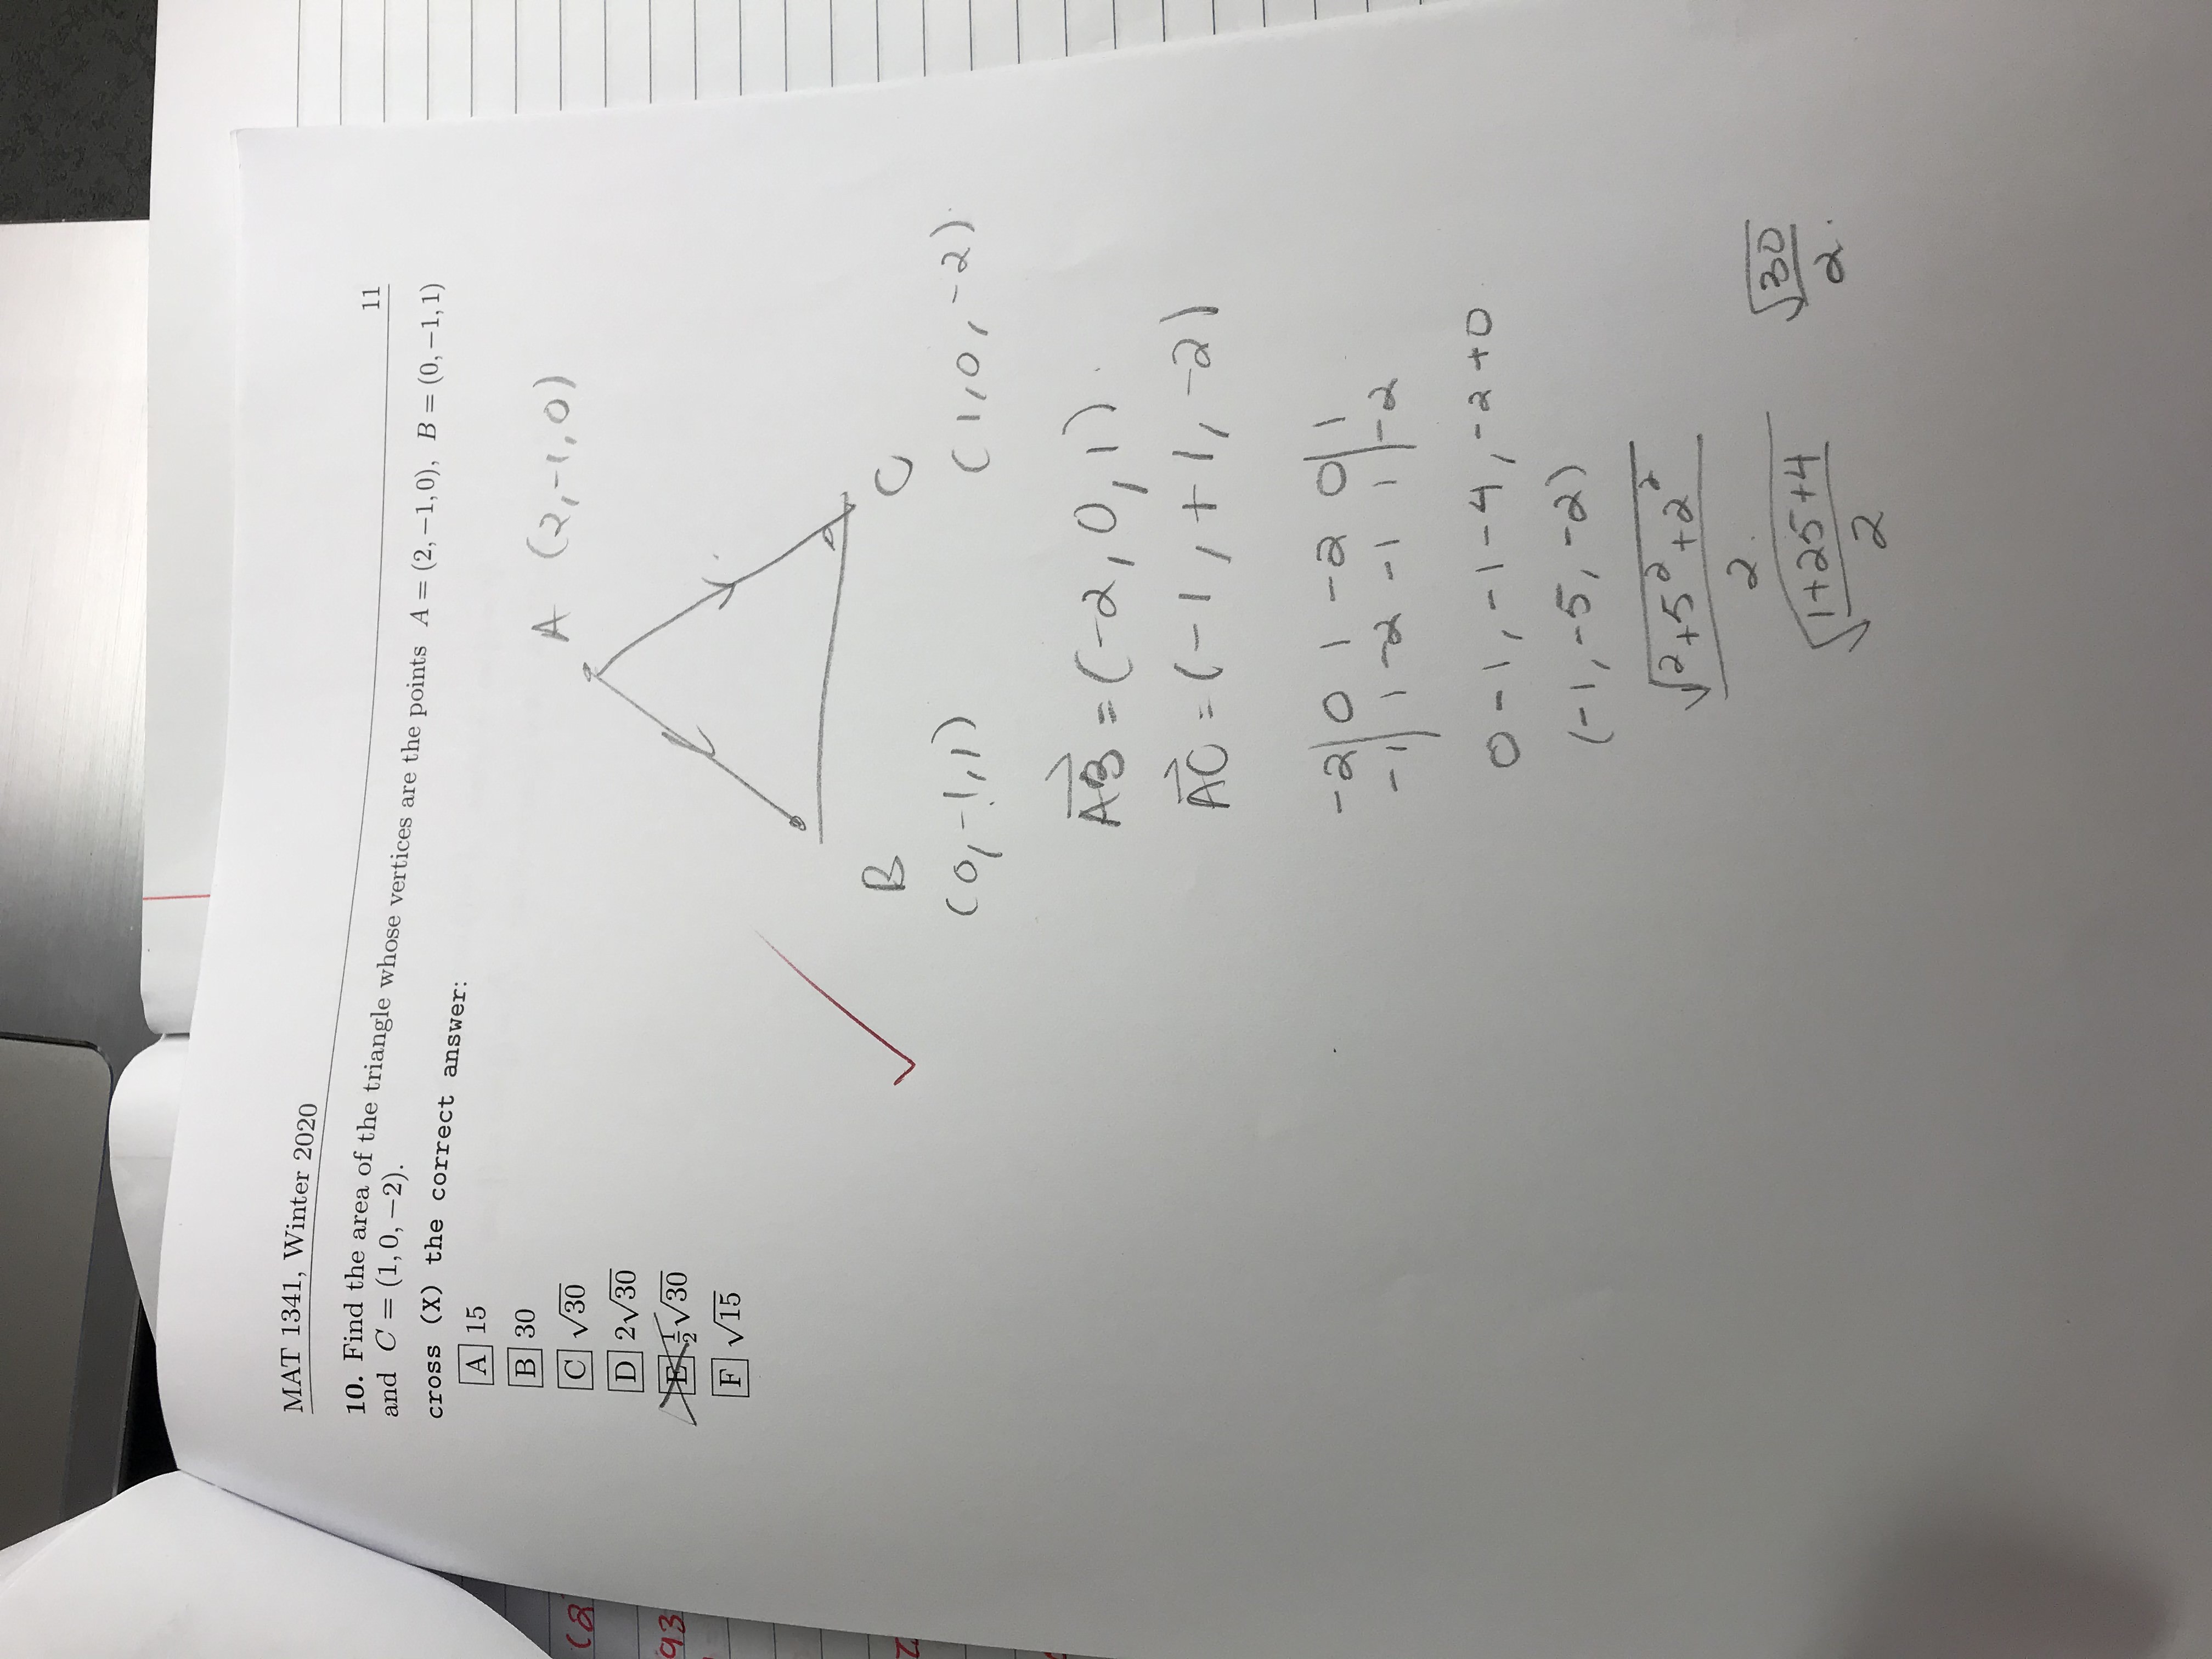 MAT 1341, Winter 2020 11
10. Find the area of the triangle whose vertices are the points A = (2, −1, 0), B = (0, −1, 1)
and C = (1, 0, −2).
cross (X) the correct answer:
A 15
B 30
C √30
D 2√30
E ½√30
F √15
A (2, -1, 0)
B C
(0, -1, 1) (1, 0, -2)
AB = (-2, 0, 1).
AC = (-1, +1, -2)
-2 | 0 1 -2 0 | 1
-1 | 1 -2 -1 1 | -2
0 - 1, -1 - 4, -2 + 0
(-1, -5, -2)
√2+5²+2²
2.
√1+25+4
2
√30
2.
(2
93